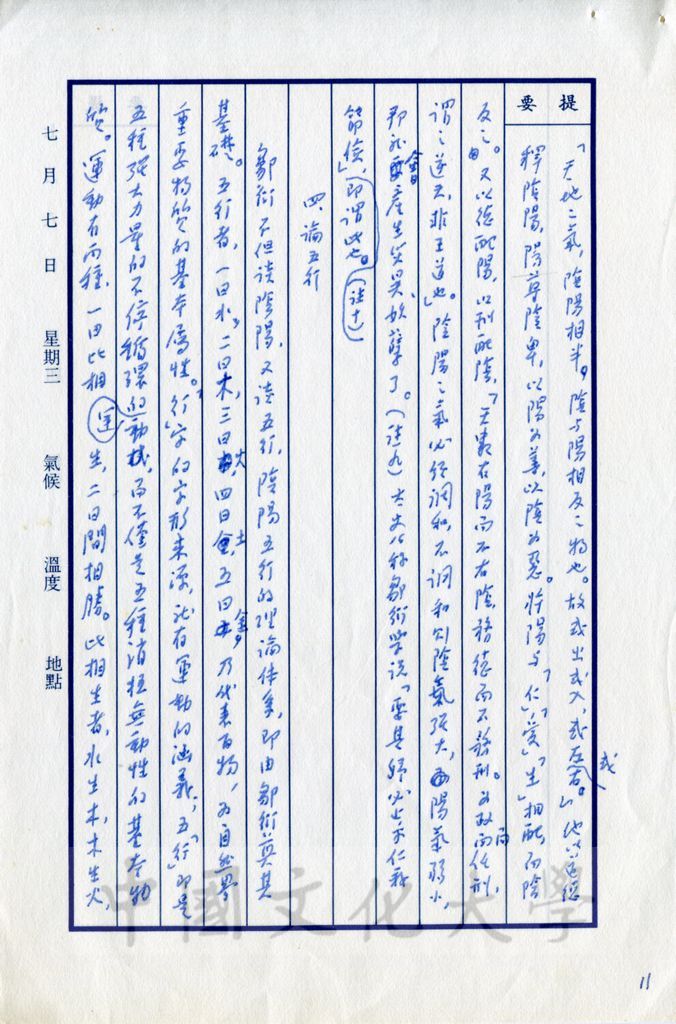 提要
「天地之氣,陰陽相半。陰與陽相反之物也。故或出或入,或左或右。」他以這樣
釋陰陽,陽尊陰卑,以陽為善,以陰為惡。將陽與「仁」「愛」「生」相配,而陰
反之。又以德配陽,以刑配陰,「天數右陽而不右陰,務德而不務刑。為政而任刑,
謂之逆天,非王道也」。陰陽之氣必須調和,不調和則陰氣強大,而陽氣弱小,
那就會產生災異、妖孽了。(註九)太史公稱鄒衍學說「要其歸必止乎仁義
節儉」,即謂此也。(註十)
四、論五行
鄒衍不但談陰陽,又談五行,陰陽五行的理論體系,即由鄒衍奠其
基礎。五行者,一曰水,二曰木,三曰火,四曰土,五曰金,乃代表百物,為自然界
重要物質的基本屬性。「行」字的字形來源,就有運動的涵義,「五行」即是
五種強大力量的不停循環的動機,而不僅是五種消極無動性的基本物
質。運動有兩種,一曰比相生,二曰間相勝。比相生者,水生木,木生火,
七月七日 星期三 氣候 溫度 地點
中國文化大學
11